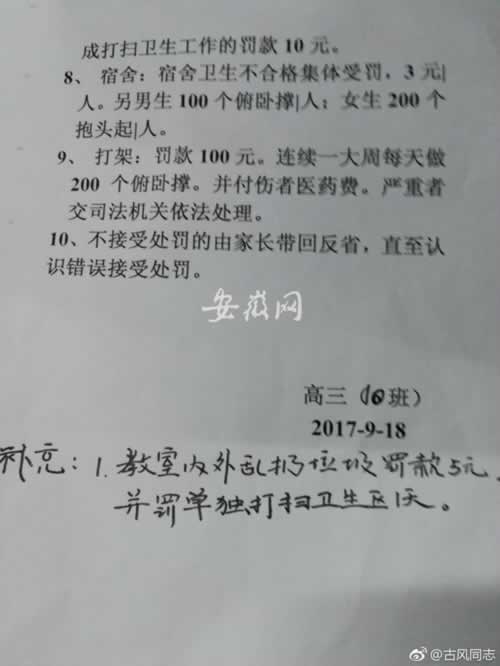 成打扫卫生工作的罚款 10 元。
8、 宿舍：宿舍卫生不合格集体受罚，3 元|
人。另男生 100 个俯卧撑|人；女生 200 个
抱头起|人。
9、 打架：罚款 100 元。连续一大周每天做
200 个俯卧撑。并付伤者医药费。严重者
交司法机关依法处理。
10、不接受处罚的由家长带回反省，直至认
识错误接受处罚。
安徽网
高三（10班）
2017-9-18
补充：1. 教室内外乱扔垃圾罚款5元，
并罚单独打扫卫生区1天。
@古风同志